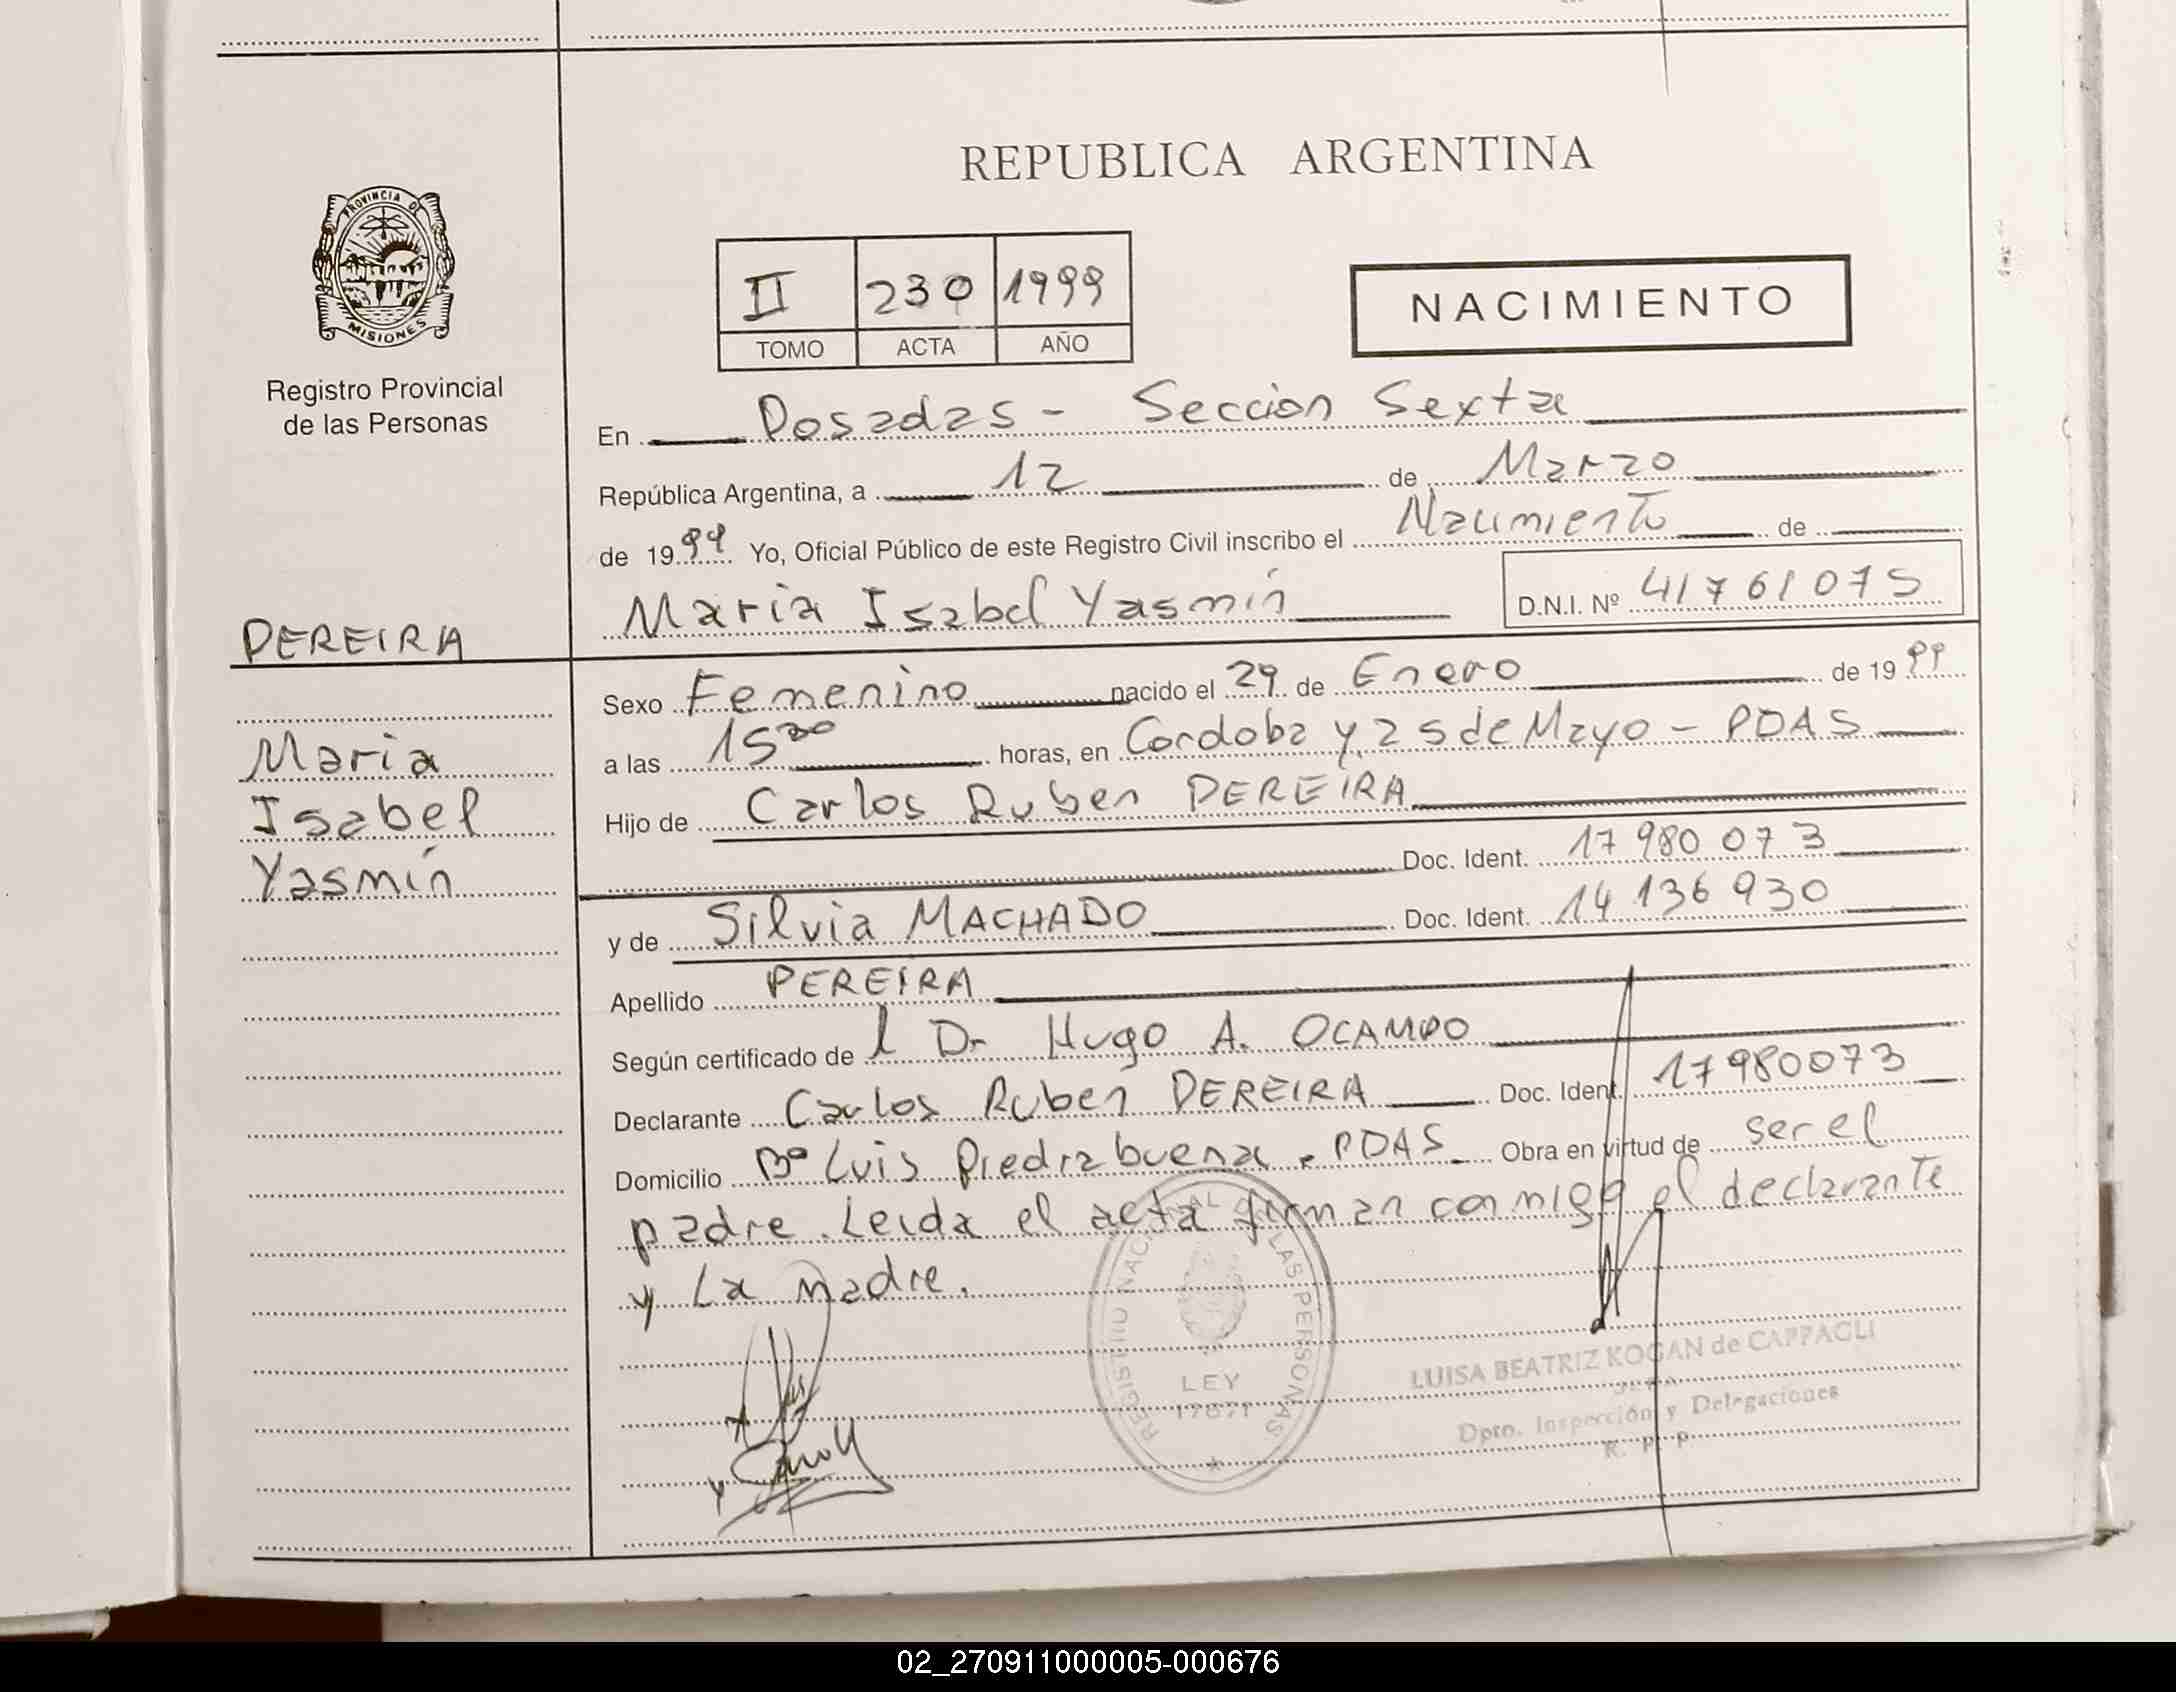 REPUBLICA ARGENTINA
PROVINCIA DE
MISIONES
Registro Provincial
de las Personas
II 230 1999
TOMO ACTA AÑO
NACIMIENTO
En Posadas - Sección Sexta
República Argentina, a 12 de Marzo
de 1999 Yo, Oficial Público de este Registro Civil inscribo el Nacimiento de
Maria Isabel Yasmín D.N.I. Nº 41761075
PEREIRA
Maria
Isabel
Yasmín
Sexo Femenino nacido el 29 de Enero de 1999
a las 15 horas, en Cordoba y 25 de Mayo - PDAS
Hijo de Carlos Ruben PEREIRA
Doc. Ident. 17 980 073
y de Silvia MACHADO Doc. Ident. 14 136 930
Apellido PEREIRA
Según certificado de l Dr Hugo A. OCAMPO
Declarante Carlos Ruben PEREIRA Doc. Ident. 17980073
Domicilio Bº Luis Piedrabuena. PDAS. Obra en virtud de ser el
padre. Leida el acta firman conmigo el declarante
y La madre.
REGISTRO NACIONAL DE LAS PERSONAS
LEY
17671
LUISA BEATRIZ KOGAN de CAPPAGLI
JEFA
Dpto. Inspección y Delegaciones
R. P. P.
02_270911000005-000676